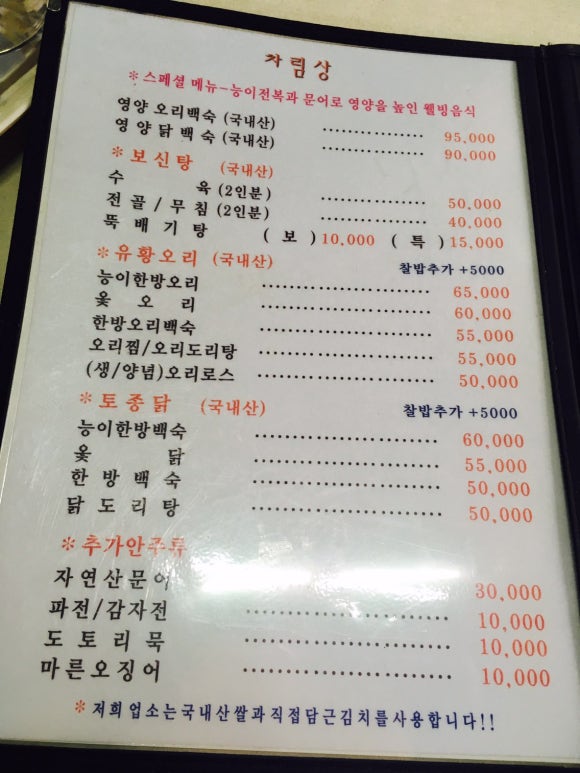 차림상
*스페셜 메뉴-능이전복과 문어로 영양을 높인 웰빙음식
영양 오리백숙 (국내산) .................. 95,000
영양닭백숙 (국내산) .................. 90,000
*보신탕 (국내산)
수 육 (2인분) .................. 50,000
전골/무침 (2인분) .................. 40,000
뚝 배 기 탕 ( 보 ) 10,000 ( 특 ) 15,000
*유황오리 (국내산) 찰밥추가 +5000
능이한방오리 .................. 65,000
옻 오 리 .................. 60,000
한방오리백숙 .................. 55,000
오리찜/오리도리탕 .................. 55,000
(생/양념)오리로스 .................. 50,000
*토종닭 (국내산) 찰밥추가 +5000
능이한방백숙 .................. 60,000
옻 닭 .................. 55,000
한 방 백 숙 .................. 50,000
닭 도 리 탕 .................. 50,000
*추가안주류
자연산문어 30,000
파전/감자전 .................. 10,000
도 토 리 묵 .................. 10,000
마른오징어 .................. 10,000
*저희업소는국내산쌀과직접담근김치를사용합니다!!